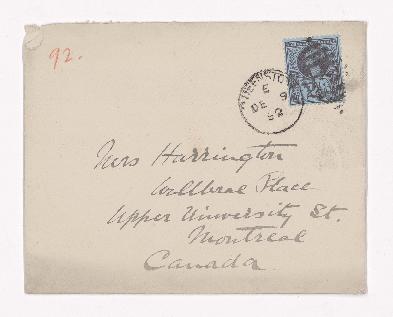 92.
E
DE 9
92
Mrs Harrington
Wallbrae Place
Upper University St.
Montreal
Canada